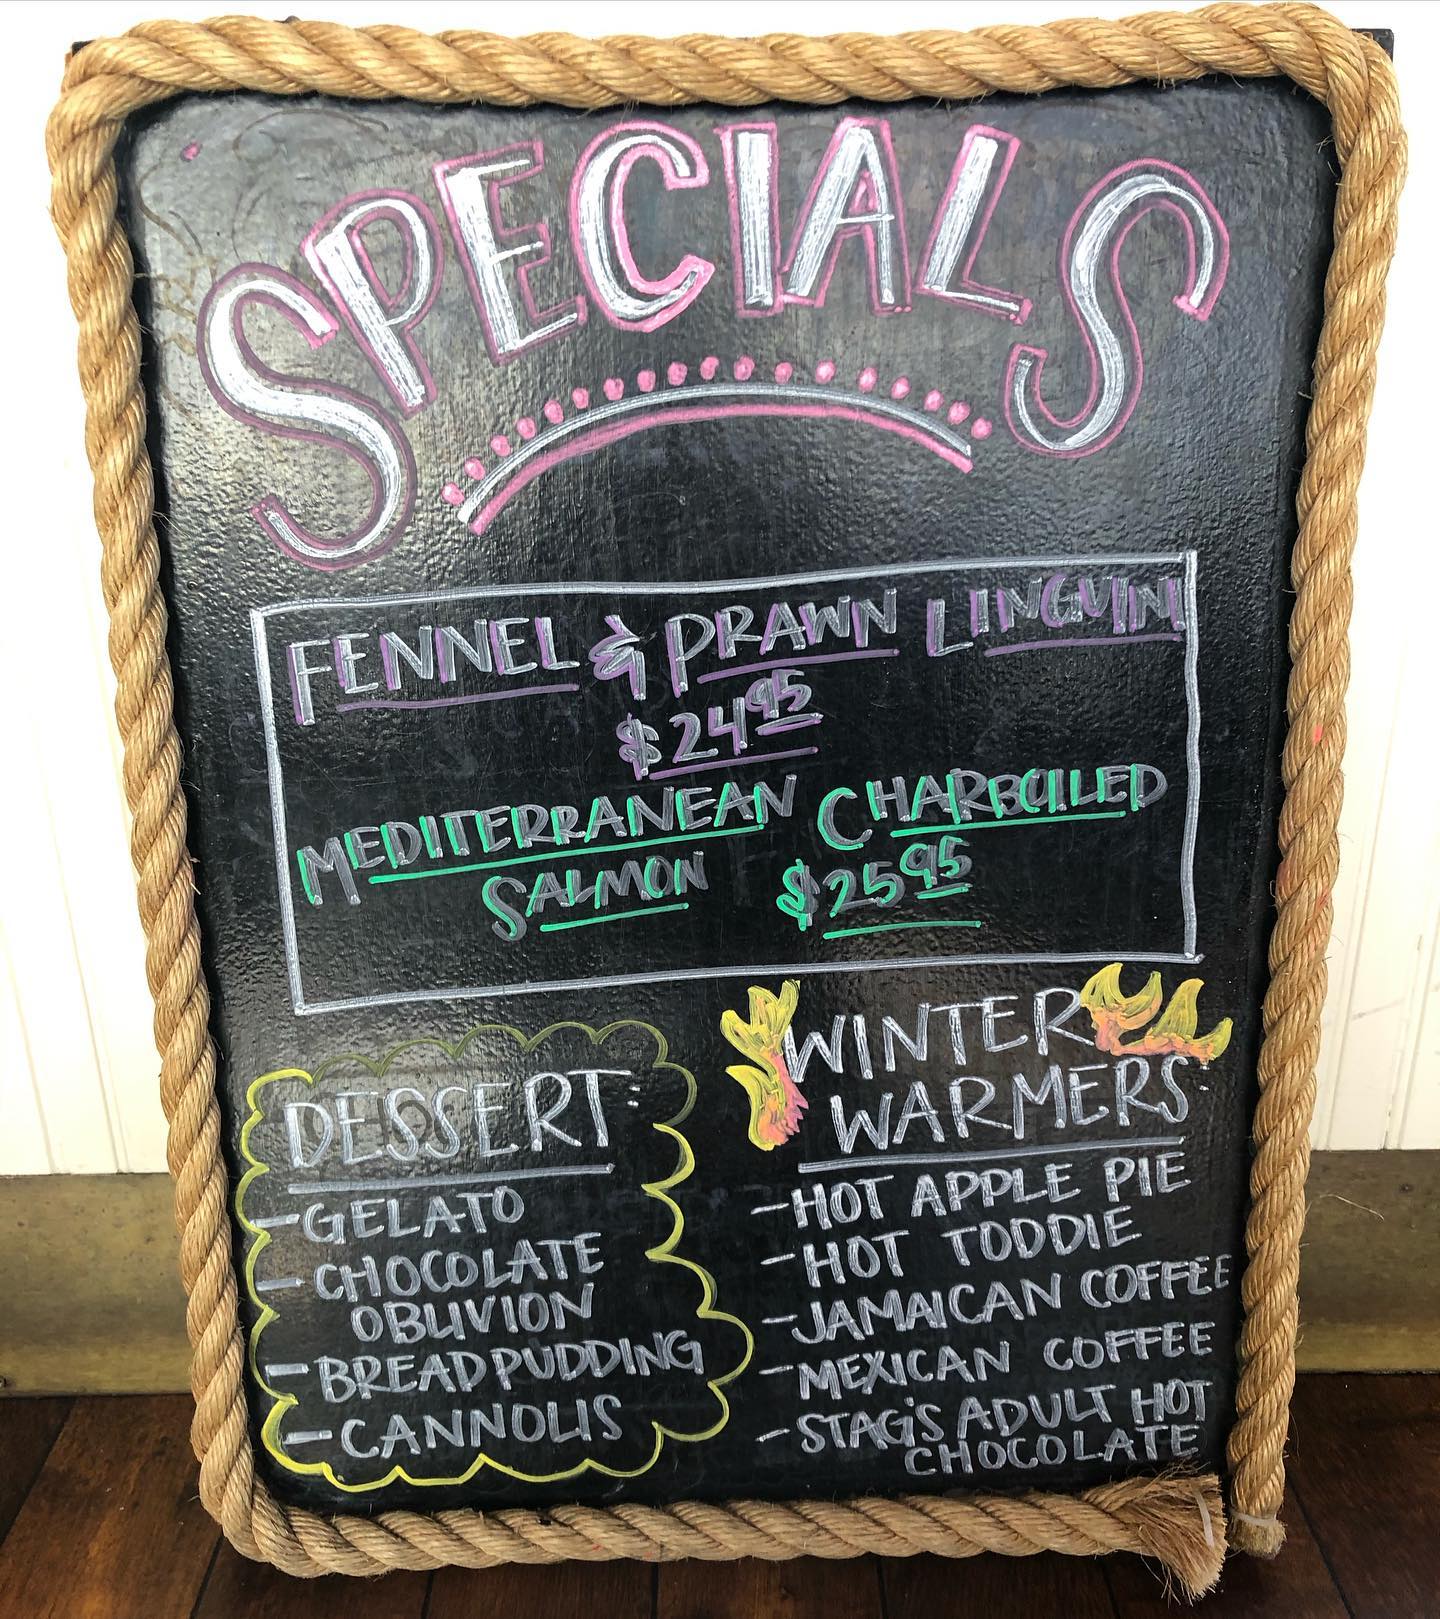 SPECIALS
FENNEL & PRAWN LINGUINI
$24.95
MEDITERRANEAN CHARBOILED
SALMON $25.95
DESSERT:
-GELATO
-CHOCOLATE
OBLIVION
-BREAD PUDDING
-CANNOLIS
WINTER
WARMERS:
-HOT APPLE PIE
-HOT TODDIE
-JAMAICAN COFFEE
-MEXICAN COFFEE
-STAG'S ADULT HOT
CHOCOLATE